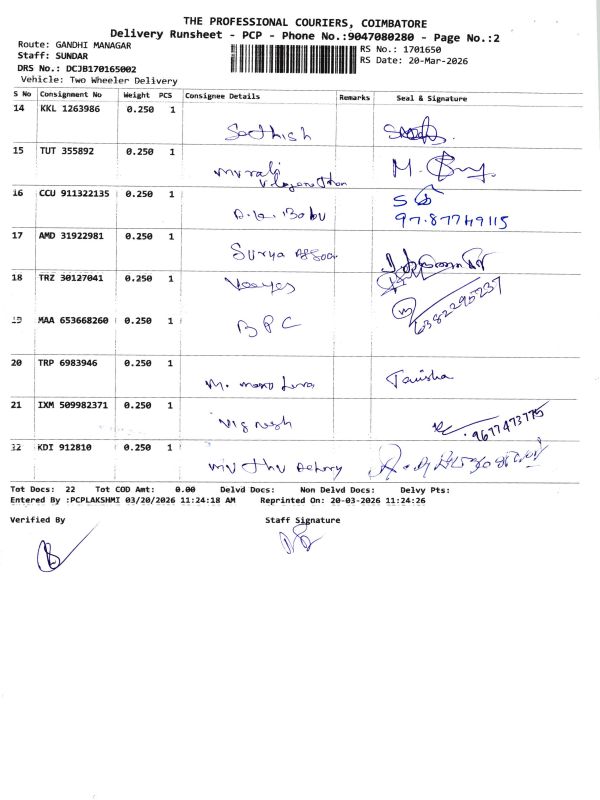 THE PROFESSIONAL COURIERS, COIMBATORE
Delivery Runsheet - PCP - Phone No.:9047080280 - Page No.:2
Route: GANDHI MANAGAR
RS No.: 1701650
Staff: SUNDAR
RS Date: 20-Mar-2026
DRS No.: DCJB170165002
Vehicle: Two Wheeler Delivery
S No Consignment No Weight PCS Consignee Details Remarks Seal & Signature
14 KKL 1263986 0.250 1
Sathish
15 TUT 355892 0.250 1
Murali
M.
16 CCU 911322135 0.250 1
Babu
9787749115
17 AMD 31922981 0.250 1
Surya
18 TRZ 30127041 0.250 1
6382295237
19 MAA 653668260 0.250 1
BPC
20 TRP 6983946 0.250 1
M.
Tanisha
21 IXM 509982371 0.250 1
Vignesh
9677473775
22 KDI 912810 0.250 1
Tot Docs: 22 Tot COD Amt: 0.00 Delvd Docs: Non Delvd Docs: Delvy Pts:
Entered By :PCPLAKSHMI 03/20/2026 11:24:18 AM Reprinted On: 20-03-2026 11:24:26
Verified By Staff Signature